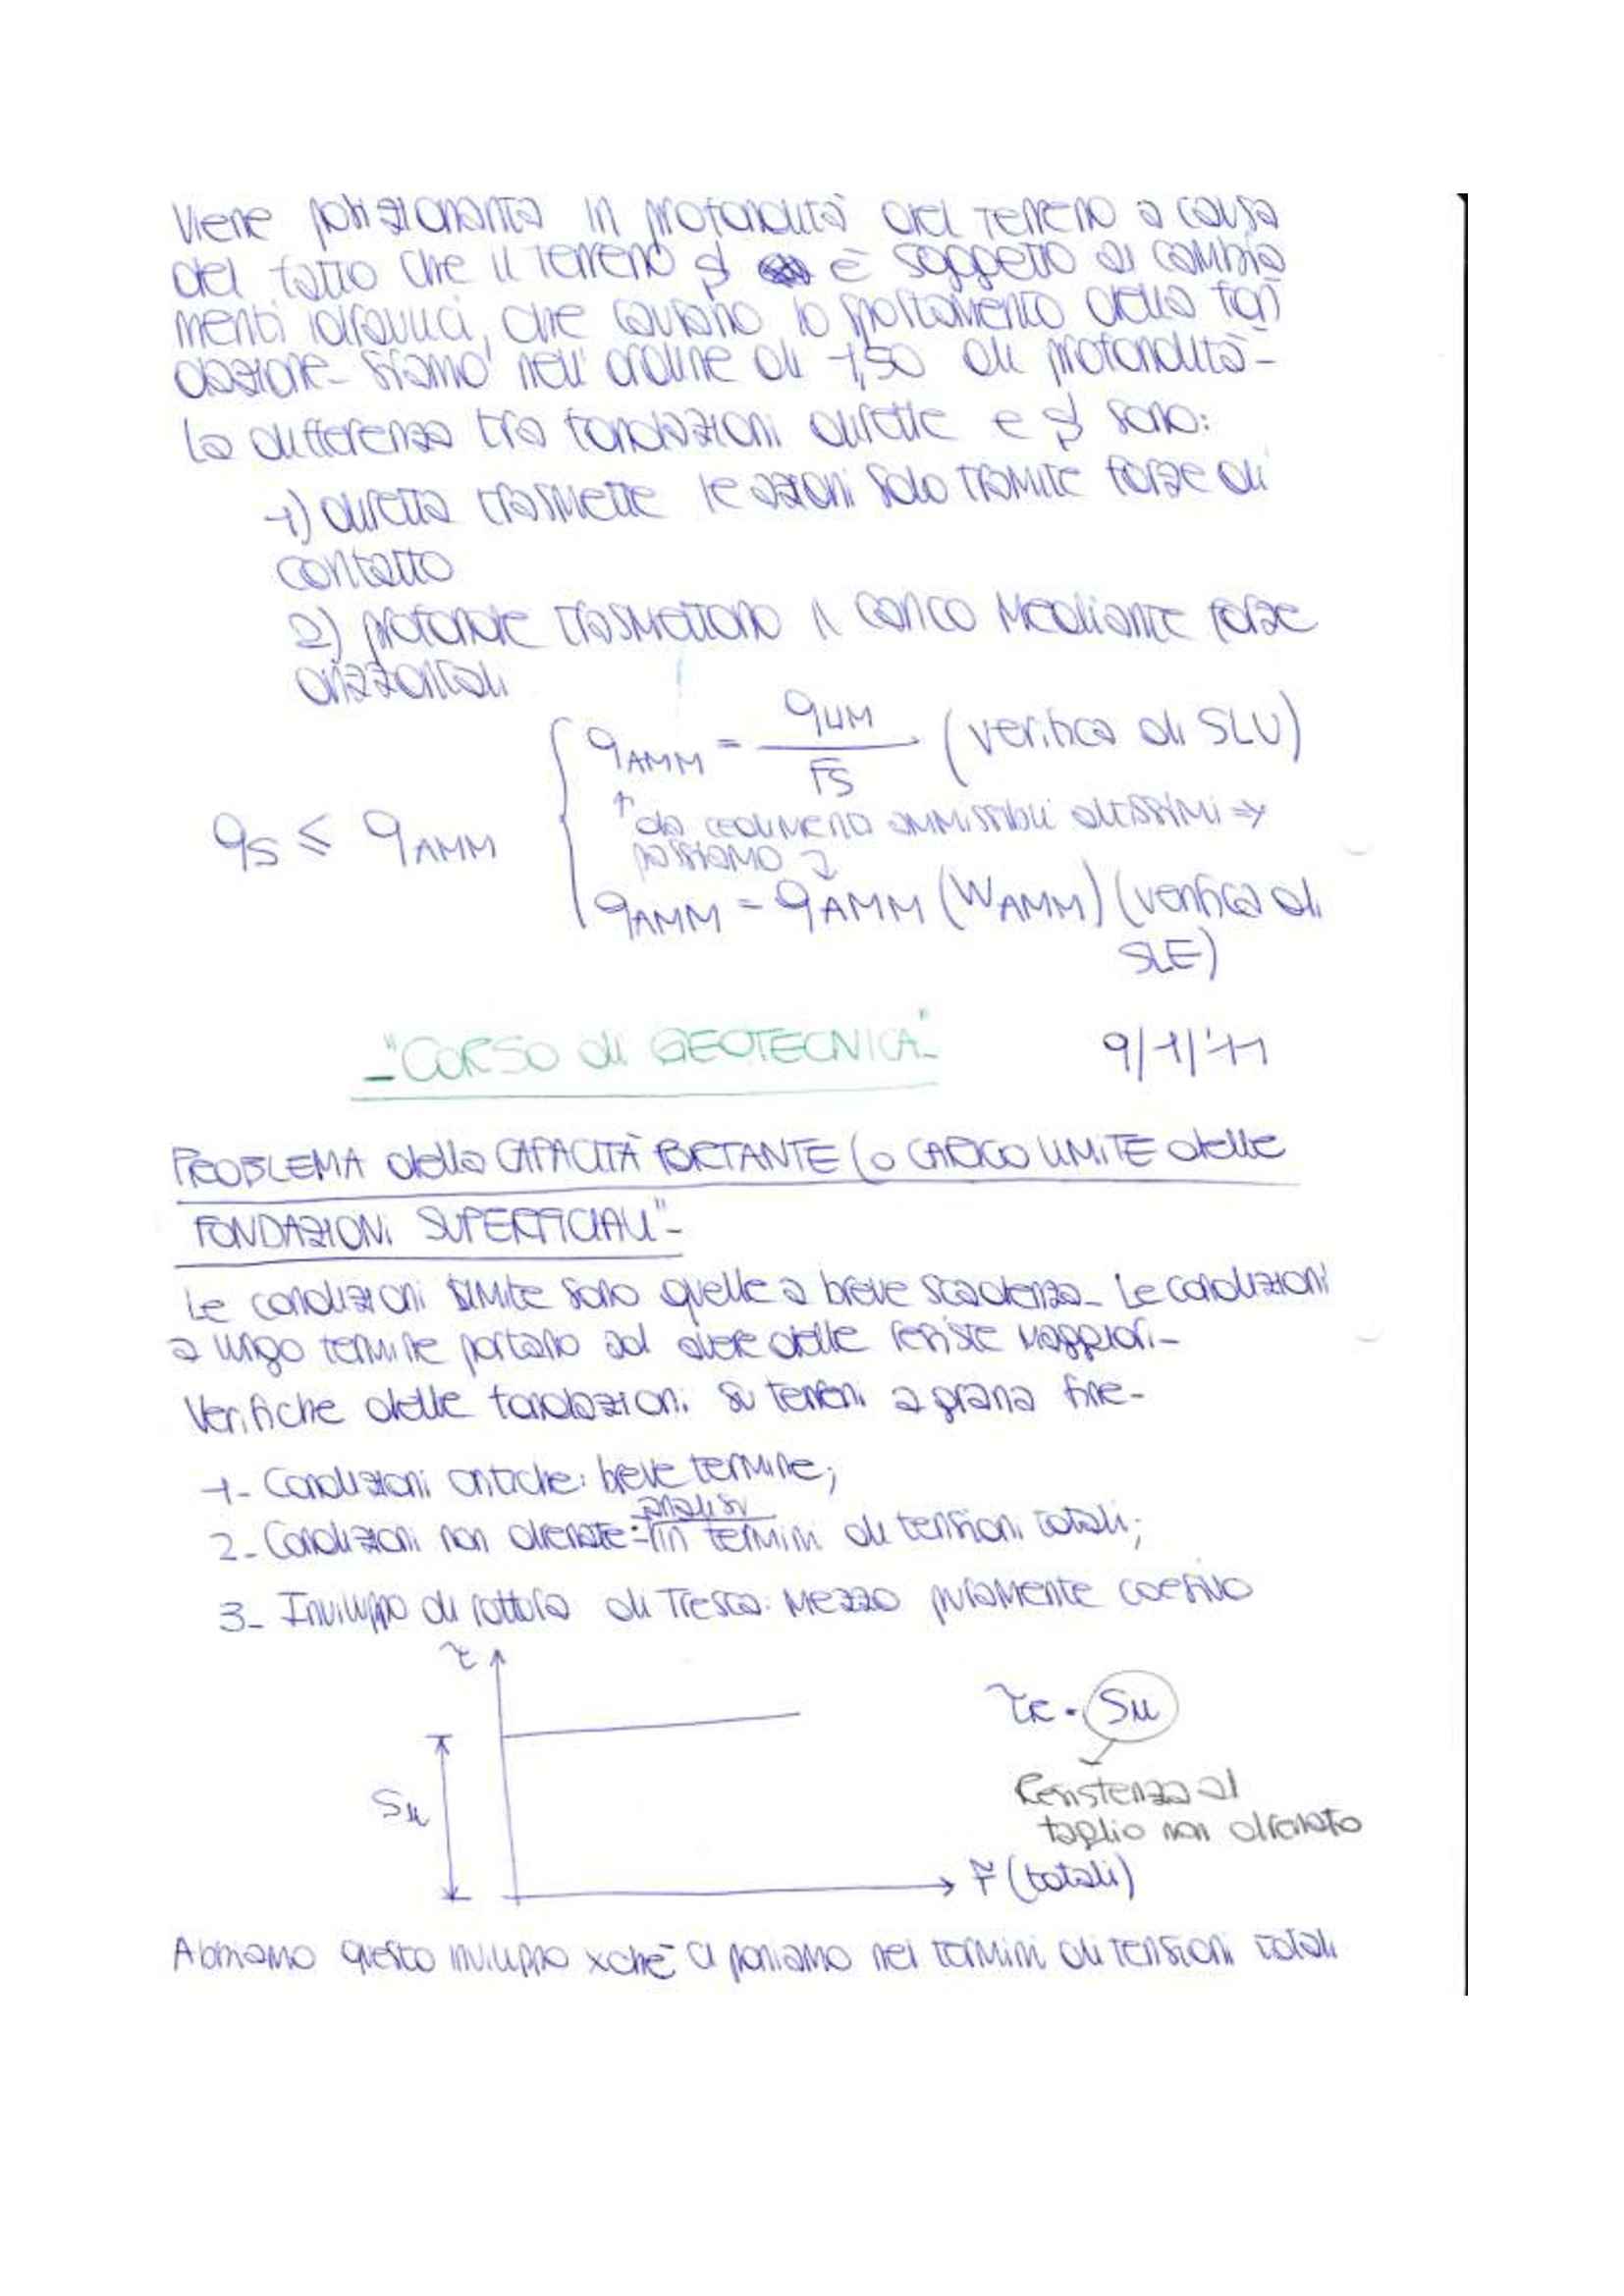 Viene posizionanta in profondità del terreno a causa
del fatto che il terreno è soggetto ai cambia
menti idraulici, che causano lo spostamento della fon
dazione. Siamo nell'ordine di 1,50 di profondità-
La differenza tra fondazioni dirette e sono:
1) diretta trasmette le azioni solo tramite forze di
contatto
2) profonde trasmettono il carico mediante forze
orizzontali
qAMM = qLIM / FS (verifica di SLU)
↑ da cedimento ammissibili altissimi ⇒
qS ≤ qAMM
possiamo ↓
qAMM = qAMM (WAMM) (verifica di
SLE)
-"CORSO di GEOTECNICA"- 9/1/'11
PROBLEMA della CAPACITÀ PORTANTE (o CARICO LIMITE delle
FONDAZIONI SUPERFICIALI"-
Le condizioni limite sono quelle a breve scadenza- Le condizioni
a lungo termine portano ad avere delle maggiori-
Verifiche delle fondazioni su terreni a grana fine-
1- Condizioni critiche: breve termine;
2- Condizioni non drenate: analisi in termini di tensioni totali;
3- Inviluppo di rottura di Tresca: mezzo puramente coesivo
τ
τR = Su
Su
Resistenza al
taglio non drenato
(totali)
Abbiamo questo inviluppo xchè ci poniamo nei termini di tensioni totali